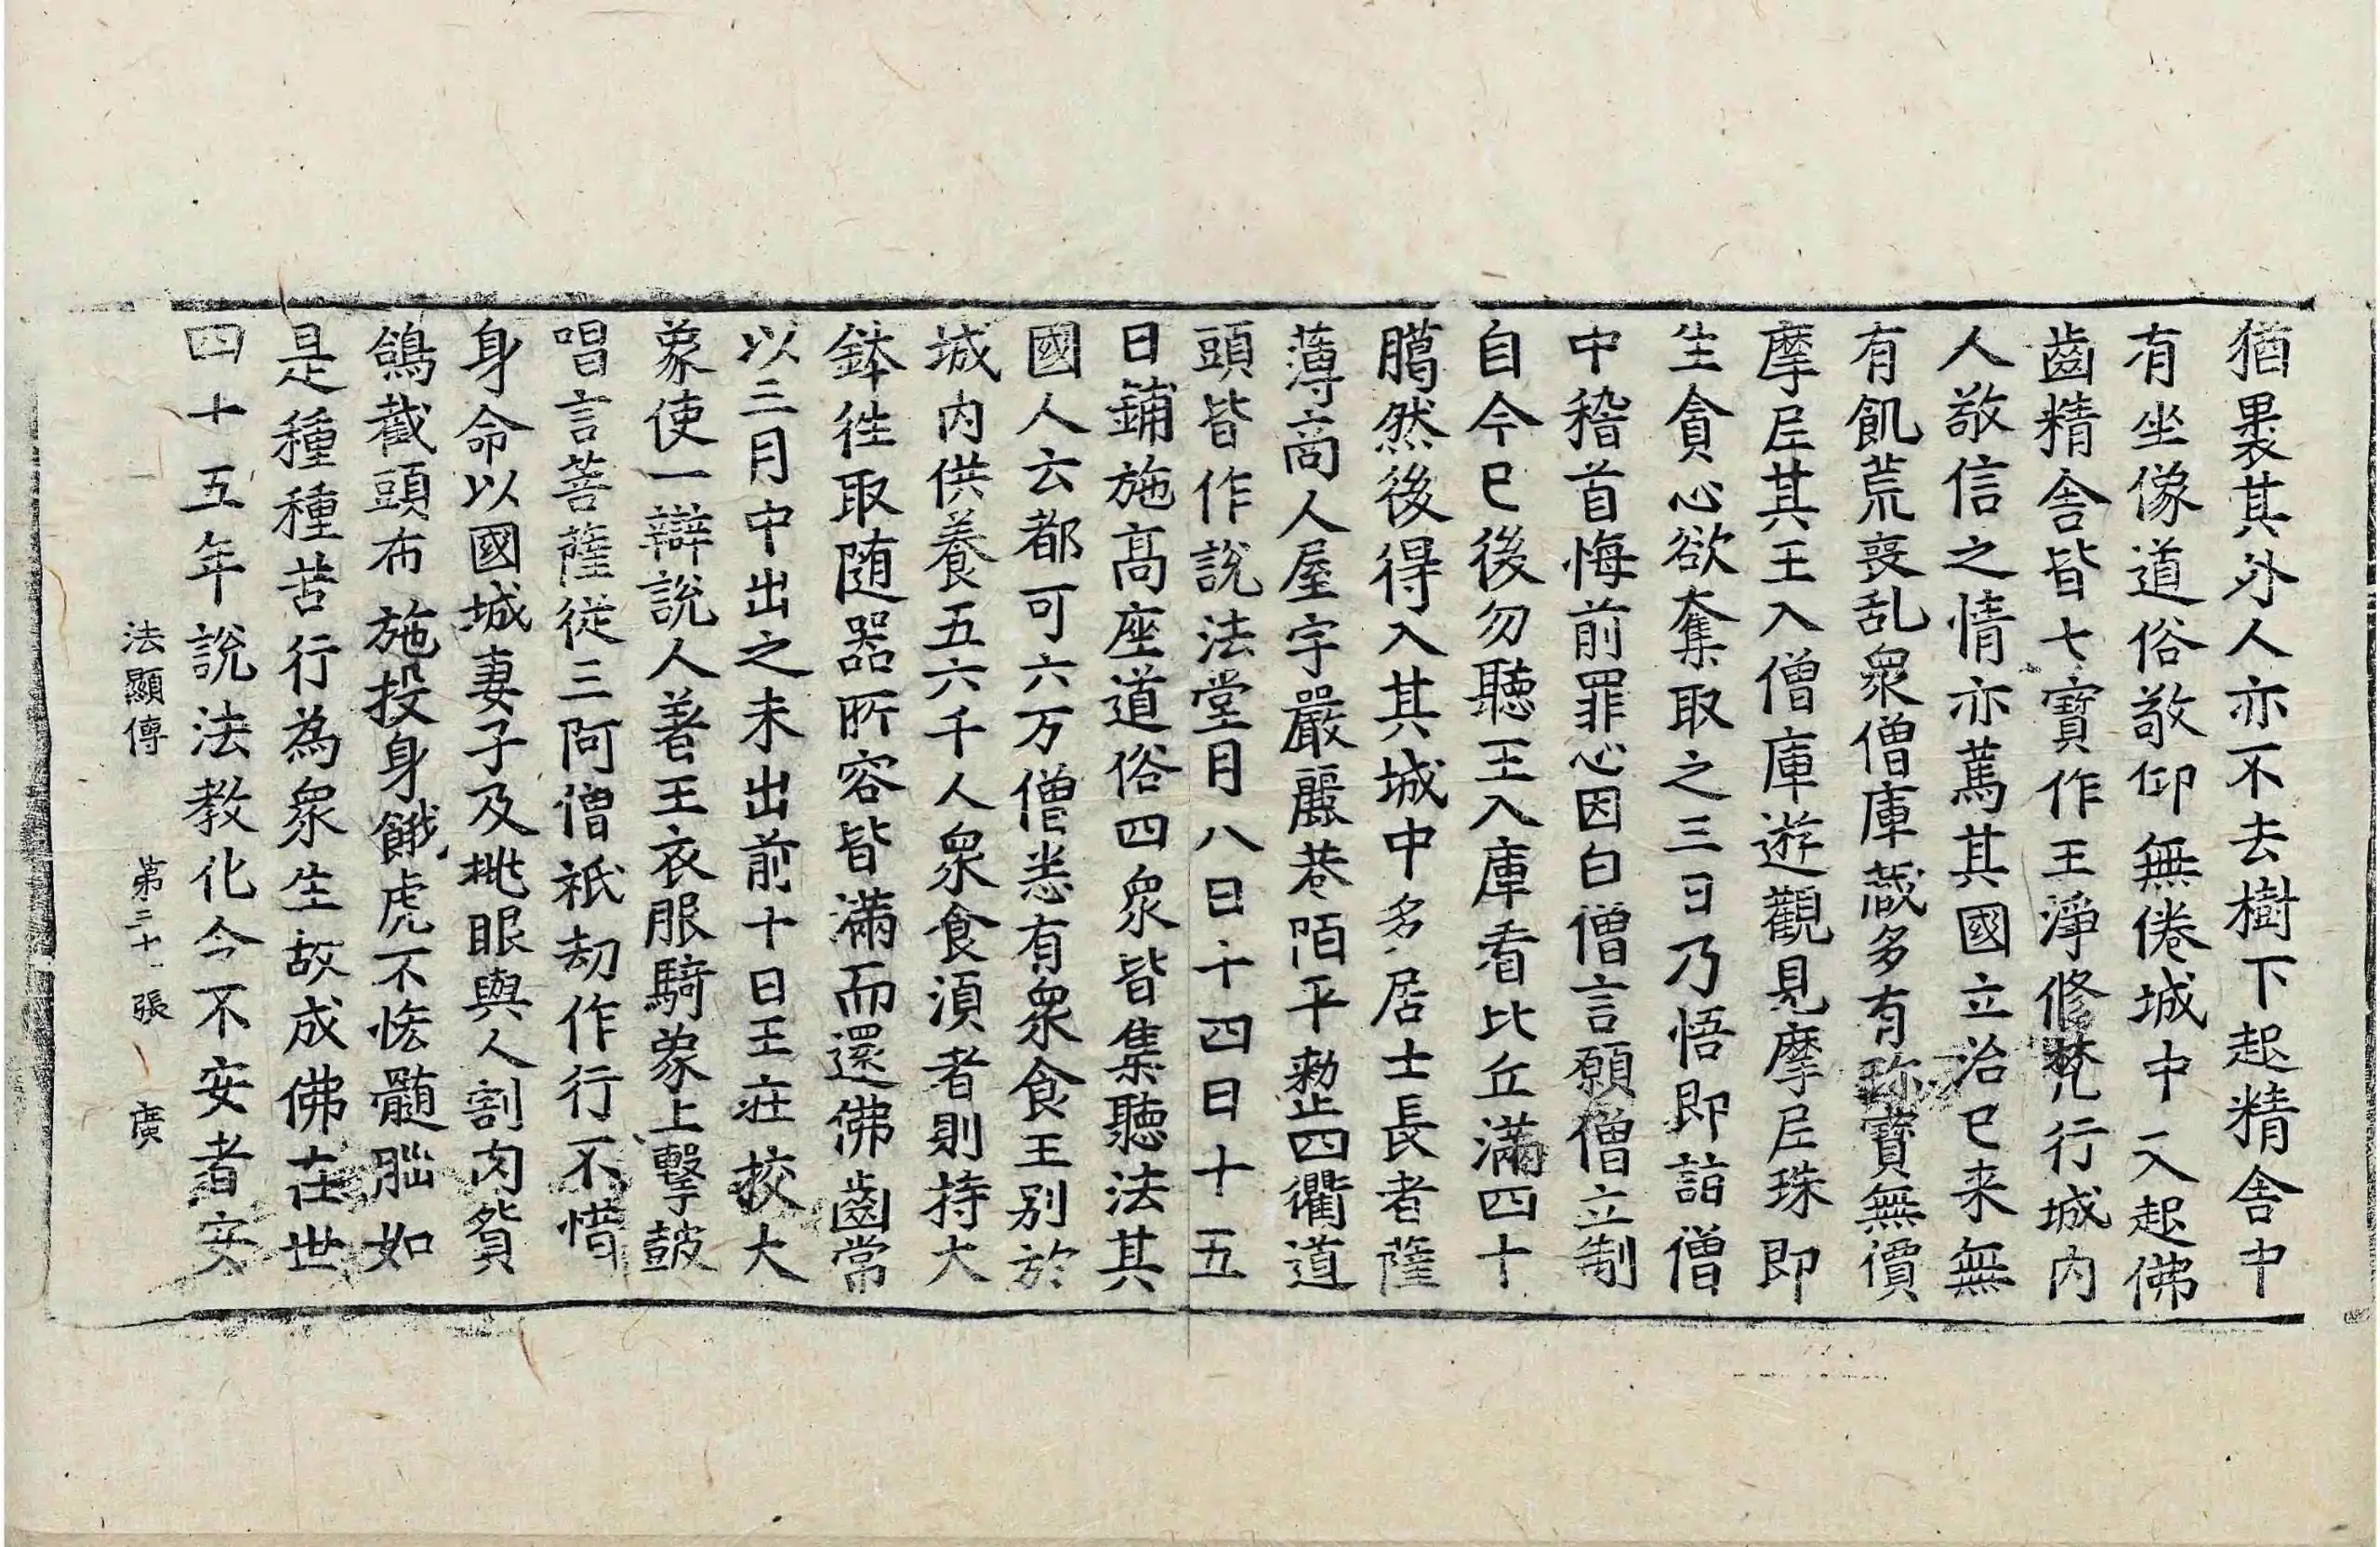 猶裹其外人亦不去樹下起精舎中
有坐像道俗敬仰無倦城中又起佛
齒精舎皆七寶作王淨修梵行城内
人敬信之情亦篤其國立治已来無
有飢荒喪乱衆僧庫藏多有珎寶無價
摩尼其王入僧庫遊觀見摩尼珠即
生貪心欲奪取之三日乃悟即詣僧
中稽首悔前罪心因白僧言願僧立制
自今已後勿聽王入庫看比丘滿四十
臈然後得入其城中多居士長者薩
薄商人屋宇嚴麗巷陌平勑止四衢道
頭皆作說法堂月八日十四日十五
日鋪施髙座道俗四衆皆集聽法其
國人云都可六万僧悉有衆食王别於
城内供養五六千人衆食須者則持大
鉢徃取随器所容皆滿而還佛齒常
以三月中出之未出前十日王莊挍大
象使一辯說人著王衣服騎象上擊鼓
唱言菩薩從三阿僧祇劫作行不惜
身命以國城妻子及挑眼與人割肉貿
鴿截頭布施投身餓虎不恡髓腦如
是種種苦行為衆生故成佛在世
四十五年說法教化令不安者安
法顯傳　第三十一張　廣